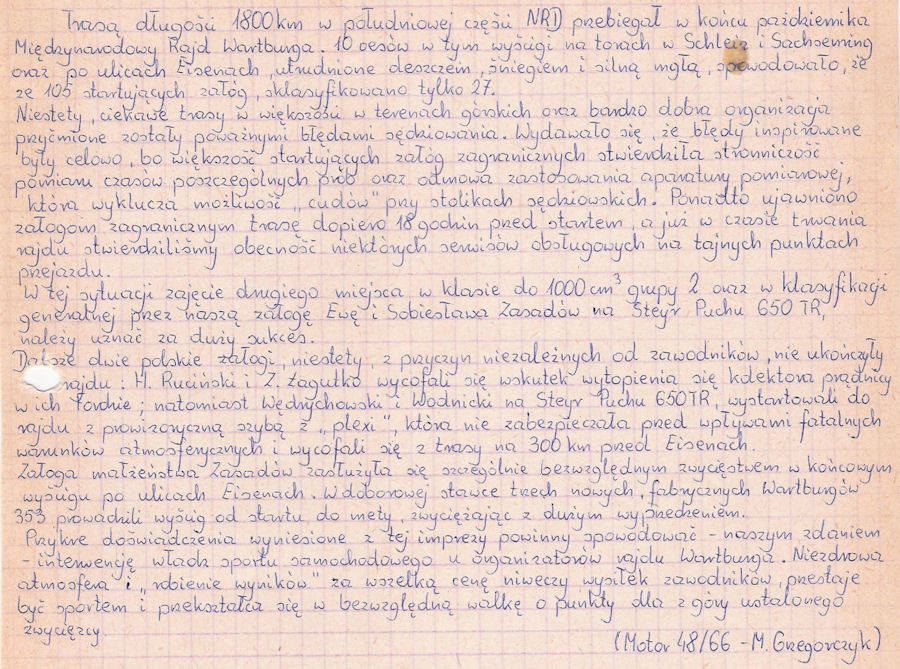 Trasą długości 1800 km w południowej części NRD przebiegał w końcu października
Międzynarodowy Rajd Wartburga. 10 oesów w tym wyścigi na torach w Schleiz i Sachsenring
oraz po ulicach Eisenach, utrudnione deszczem, śniegiem i silną mgłą, spowodowało, że
ze 105 startujących załóg, sklasyfikowano tylko 27.
Niestety, ciekawe trasy w większości w terenach górskich oraz bardzo dobra organizacja
przyćmione zostały poważnymi błędami sędziowania. Wydawało się, że błędy inspirowane
były celowo, bo większość startujących załóg zagranicznych stwierdziła stronniczość
pomiaru czasów poszczególnych prób oraz odmowa zastosowania aparatury pomiarowej,
która wyklucza możliwość „cudów" przy stolikach sędziowskich. Ponadto ujawniono
załogom zagranicznym trasę dopiero 18 godzin przed startem, a już w czasie trwania
rajdu stwierdziliśmy obecność niektórych serwisów obsługowych na tajnych punktach
przejazdu.
W tej sytuacji zajęcie drugiego miejsca w klasie do 1000 cm³ grupy 2 oraz w klasyfikacji
generalnej przez naszą załogę Ewę i Sobiesława Zasadów na Steyr Puchu 650 TR,
należy uznać za duży sukces.
Dalsze dwie polskie załogi, niestety, z przyczyn niezależnych od zawodników, nie ukończyły
rajdu: M. Ruciński i Z. Łagutko wycofali się wskutek wytopienia się kolektora prądnicy
w ich Fordzie; natomiast Wędrychowski i Wodnicki na Steyr Puchu 650TR, wystartowali do
rajdu z prowizoryczną szybą z „plexi", która nie zabezpieczała przed wpływami fatalnych
warunków atmosferycznych i wycofali się z trasy na 300 km przed Eisenach.
Załoga małżeństwa Zasadów zasłużyła się szczególnie bezwzględnym zwycięstwem w końcowym
wyścigu po ulicach Eisenach. W doborowej stawce trzech nowych, fabrycznych Wartburgów
353 prowadzili wyścig od startu do mety, zwyciężając z dużym wyprzedzeniem.
Przykre doświadczenia wyniesione z tej imprezy powinny spowodować - naszym zdaniem
- interwencję władz sportu samochodowego u organizatorów rajdu Wartburga. Niezdrowa
atmosfera i „robienie wyników" za wszelką cenę niweczy wysiłek zawodników, przestaje
być sportem i przekształca się w bezwzględną walkę o punkty dla z góry ustalonego
zwycięzcy.
(Motor 48/66 - M. Grzegorczyk)